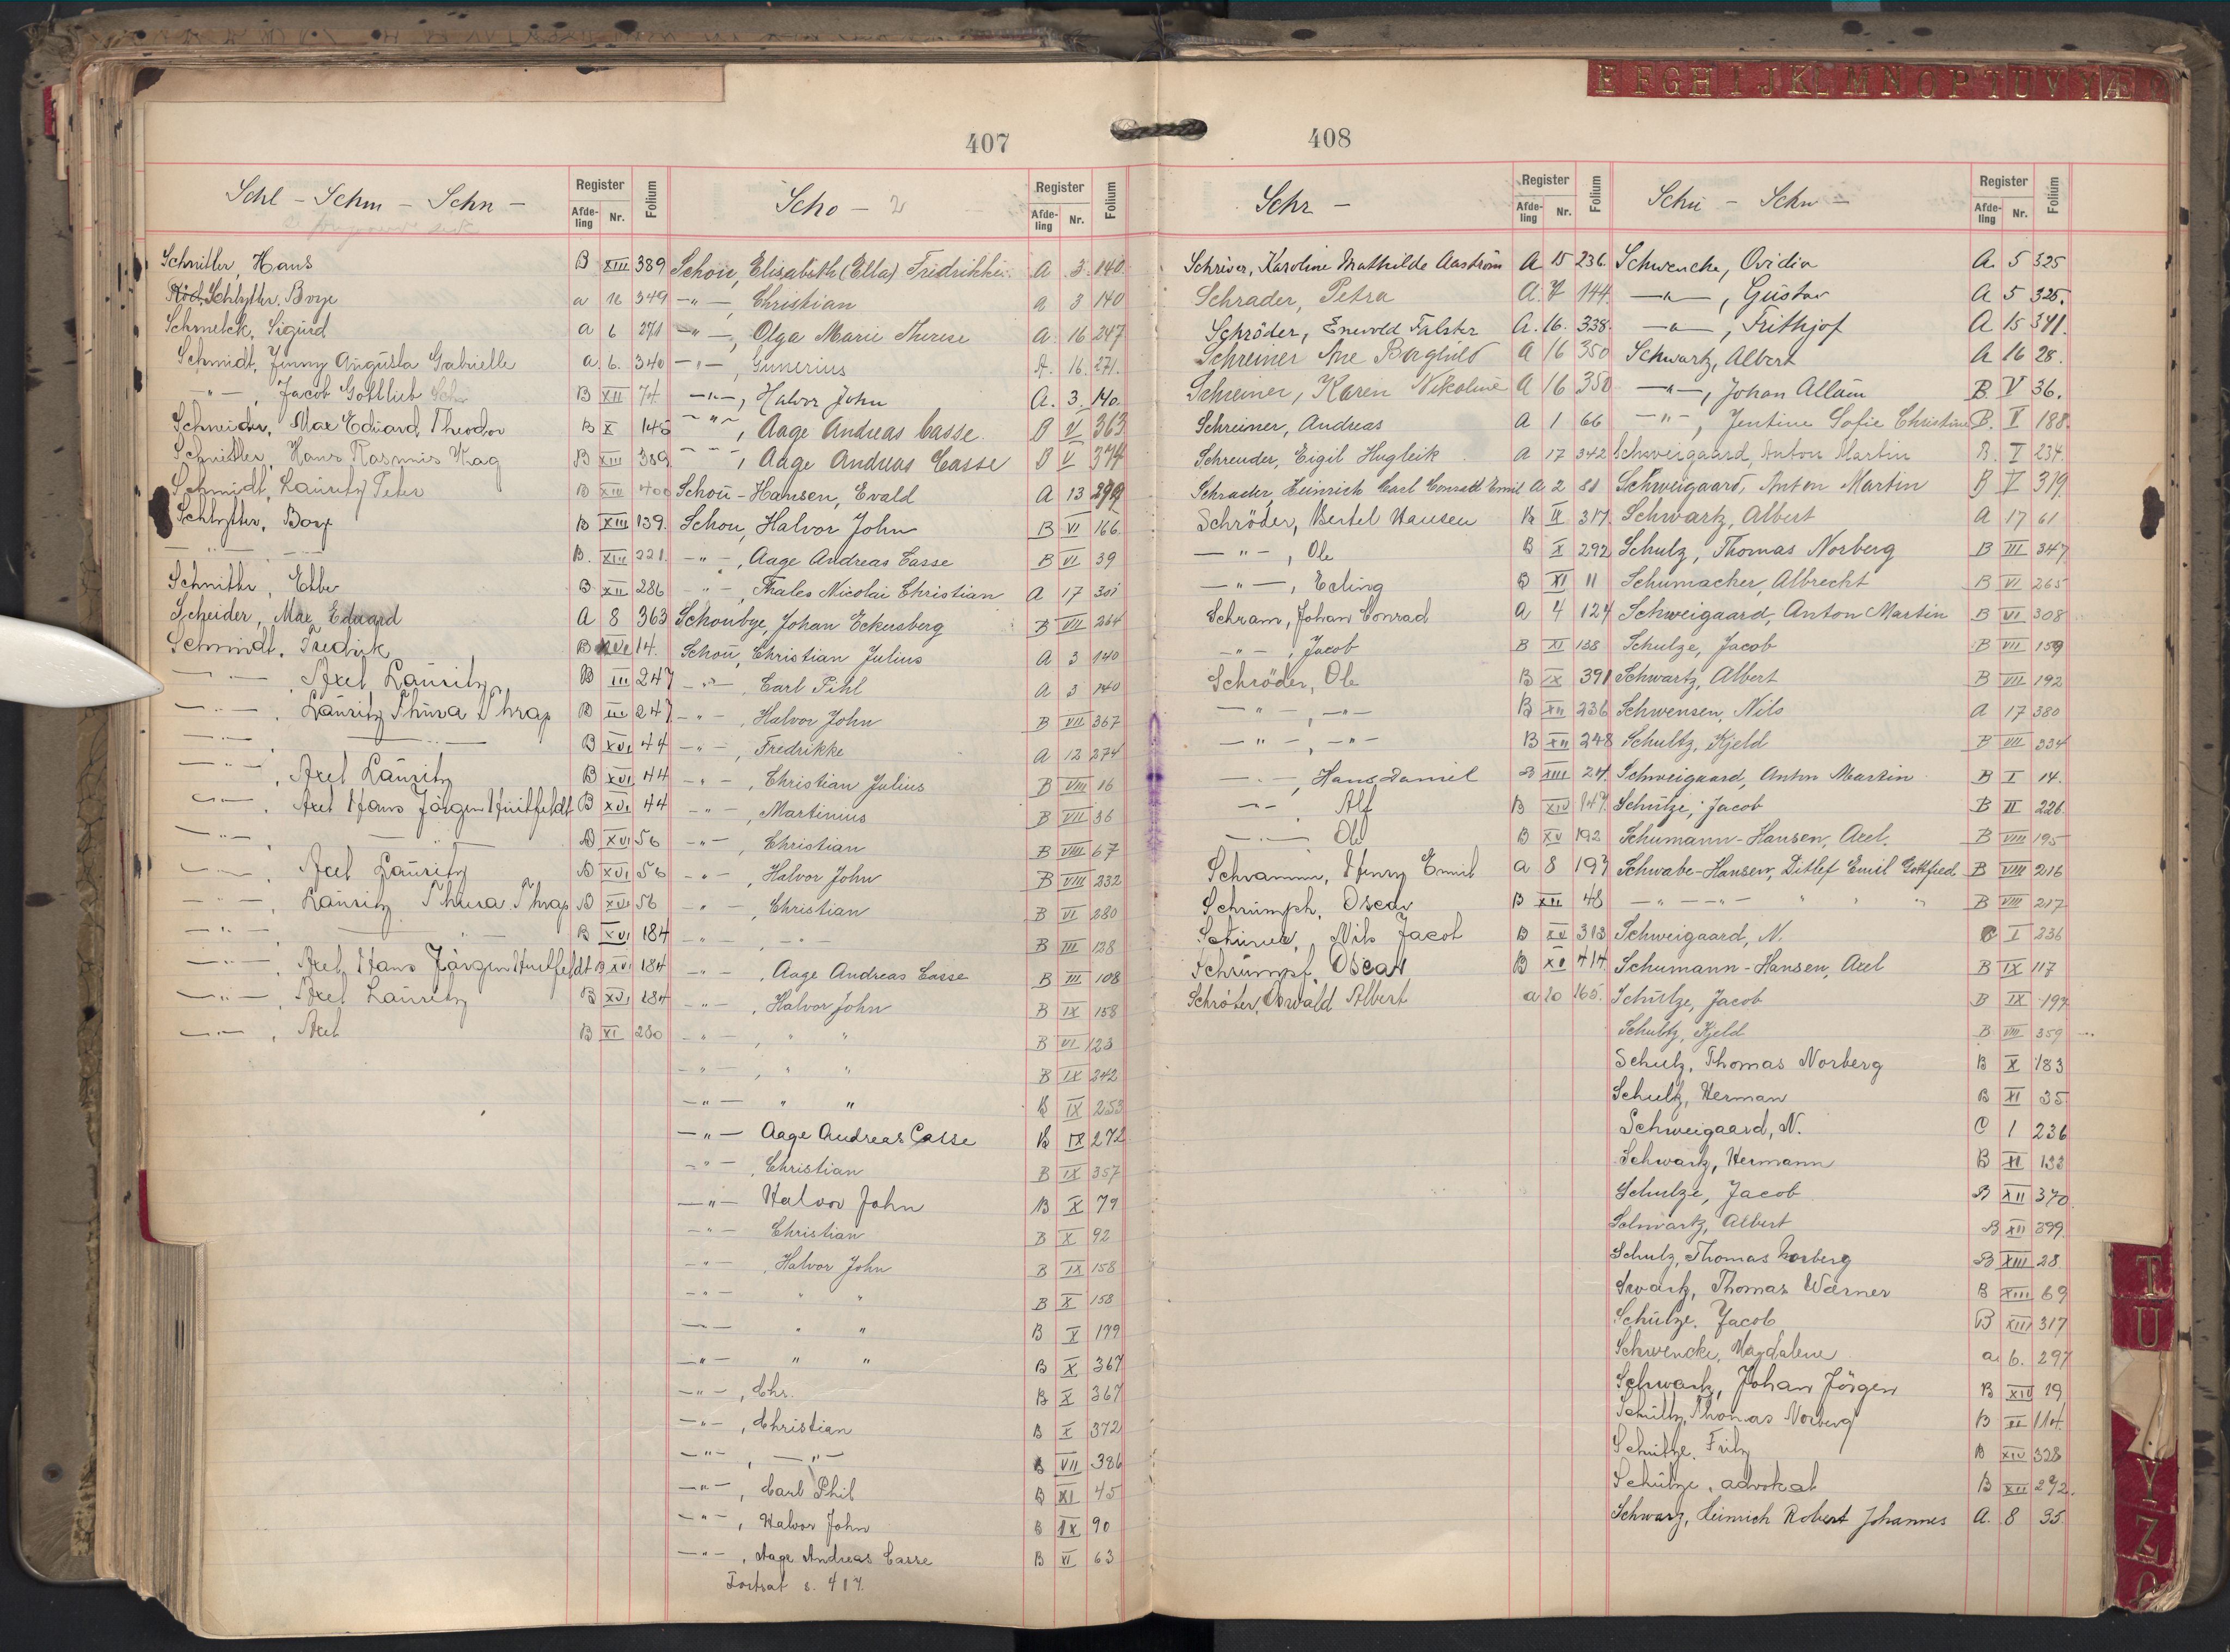 E F G H I J K L M N O P T U V Y Æ
407
Schl - Schm - Schn -
Register
Afde-ling Nr. Folium
Schnitler, Hans B XIII 389
Schlytter, Borge a 16 349
Schmelck, Sigurd a 6 271
Schmidt, Jenny Augusta Gabrielle a. 6. 340
-"-, Jacob Gottlieb B XII 74
Schneider, Max Eduard Theodor B X 145
Schnitler, Hans Rasmus Krag B XIII 389
Schmidt, Lauritz Peter B XIV 400
Schlytter, Borge B XIII 139.
-"- B. XIII 221.
Schnitler, Ebbe B XII 286
Scheider, Max Eduard A 8 363
Schmidt, Fredrik B XVI 14.
-"-, Axel Lauritz B III 247
-"-, Lauritz Thura Thrap B III 247
-"- B XVI 44
-"-, Axel Lauritz B XVI 44
-"-, Axel Hans Jörgen Huitfeldt B XVI 44
-"- B XVI 56
-"-, Axel Lauritz B XVI 56
-"-, Lauritz Thura Thrap B XVI 56
-"- B XVI 184
-"-, Axel Hans Jörgen Huitfeldt B XVI 184
-"-, Axel Lauritz B XVI 184
-"-, Axel B XI 280
Scho - 2
Register
Afde-ling Nr. Folium
Schou, Elisabeth (Ella) Fridrikke A 3 140.
-"-, Christian A 3 140
-"-, Olga Marie Therese A. 16 247
-"-, Gunerius A. 16. 271.
-"-, Halvor John A. 3. 140.
-"-, Aage Andreas Casse. B V 363
-"-, Aage Andreas Casse B V 374
Schou-Hansen, Evald A 13 279
Schou, Halvor John B VI 166.
-"-, Aage Andreas Casse B VI 39
-"-, Thales Nicolai Christian A 17 301
Schoubye, Johan Eckersberg B VII 264
Schou, Christian Julius A 3 140
-"-, Carl Pihl A 3 140
-"-, Halvor John B VII 367
-"-, Fredrikke A 12 274
-"-, Christian Julius B VIII 16
-"-, Martinius B VII 36
-"-, Christian B VIII 67
-"-, Halvor John B VIII 232
-"-, Christian B VI 280
-"-, -"- B III 128
-"-, Aage Andreas Casse B III 108
-"-, Halvor John B IX 158
-"-, " " B VI 123
-"-, " " B IX 242
-"- " " B IX 253
-"- Aage Andreas Casse B IX 272
-"-, Christian B IX 357
-"- Halvor John B X 79
-"- Christian B X 92
-"-, Halvor John B IX 158
-"- " " B X 158
-"- " " B X 199
-"- " " B X 367
-"-, Chr. B X 367
-"-, Christian B X 372
-"-, -"- B VII 386
-"-, Carl Phil B XI 45
-"-, Halvor John B IX 90
-"-, Aage Andreas Casse B XI 63
Fortsat s. 417.
408
Schr -
Register
Afde-ling Nr. Folium
Schriver, Karoline Mathilde Aaström A 15 236.
Schrader, Petra A. 7 144.
Schröder, Enevold Falster A. 16. 338.
Schreiner Ane Borghild A 16 350
Schreiner, Karen Nikoline A 16 350
Schreiner, Andreas A 1 66
Schreuder, Eigil Hugleik A 17 342
Schrader, Heinrich Carl Conradt Emil A 2 81
Schröder, Bertel Hansen B II 317
-"-, Ole B X 292
-"-, Erling B XI 11
Schram, Johan Conrad A 4 124
-"-, Jacob B XI 138
Schröder, Ole B IX 391
-"-, -"- B XII 236
-"-, -"- B XII 248
-"-, Hans Daniel B XIII 24.
-"- Alf B XIV 147.
-"- Ole B XV 192
Schramm, Henry Emil a 8 197
Schrumph, Oscar B XII 48
Schriner, Nils Jacob B XV 313
Schrumpf, Oscar B XI 414
Schröter, Oswald Albert a 20 165.
Schu - Schw -
Register
Afde-ling Nr. Folium
Schwencke, Ovidia A. 5 325
-"-, Gustav A 5 325.
-"-, Frithjof A 15 341.
Schwartz, Albert A 16 28.
-"-, Johan Allum B. V 36.
-"-, Jentine Sofie Christine B. V 188.
Schweigaard, Anton Martin B. V 234.
Schweigaard, Anton Martin B V 379.
Schwartz, Albert A 17 61
Schulz, Thomas Norberg B III 347
Schumacher, Albrecht B VI 265
Schweigaard, Anton Martin B VI 308
Schulze, Jacob B VII 159
Schwartz, Albert B VII 192
Schwensen, Nils A 17 380
Schultz, Kjeld B VII 334
Schweigaard, Anton Martin B I 14.
Schütze, Jacob B II 226.
Schumann-Hansen, Axel. B VIII 195
Schwabe-Hansen, Ditlef Emil Gottfied B VIII 216
-"- -"- " " " B VIII 217
Schweigaard, N. C I 236
Schumann-Hansen, Axel B IX 117
Schütze, Jacob B IX 197
Schultz, Kjeld B VIII 359
Schulz, Thomas Norberg B X 183
Schultz, Herman B XI 35
Schweigaard, N. C 1 236
Schwartz, Hermann B XI 133
Schulze, Jacob B XII 370.
Schwartz, Albert B XII 399.
Schulz, Thomas Norberg B XIII 28.
Swartz, Thomas Wärner B XIII 69
Schütze. Jacob B XIII 317
Schwencke, Magdalene a. 6. 297
Schwartz, Johan Jörgen B XIV 19
Schultz, Thomas Norberg B III 114.
Schütze. Fritz B XIV 328
Schütze, advokat B XII 292.
Schwarz, Heinrich Robert Johannes A. 8 35.
T
U
Y
Z